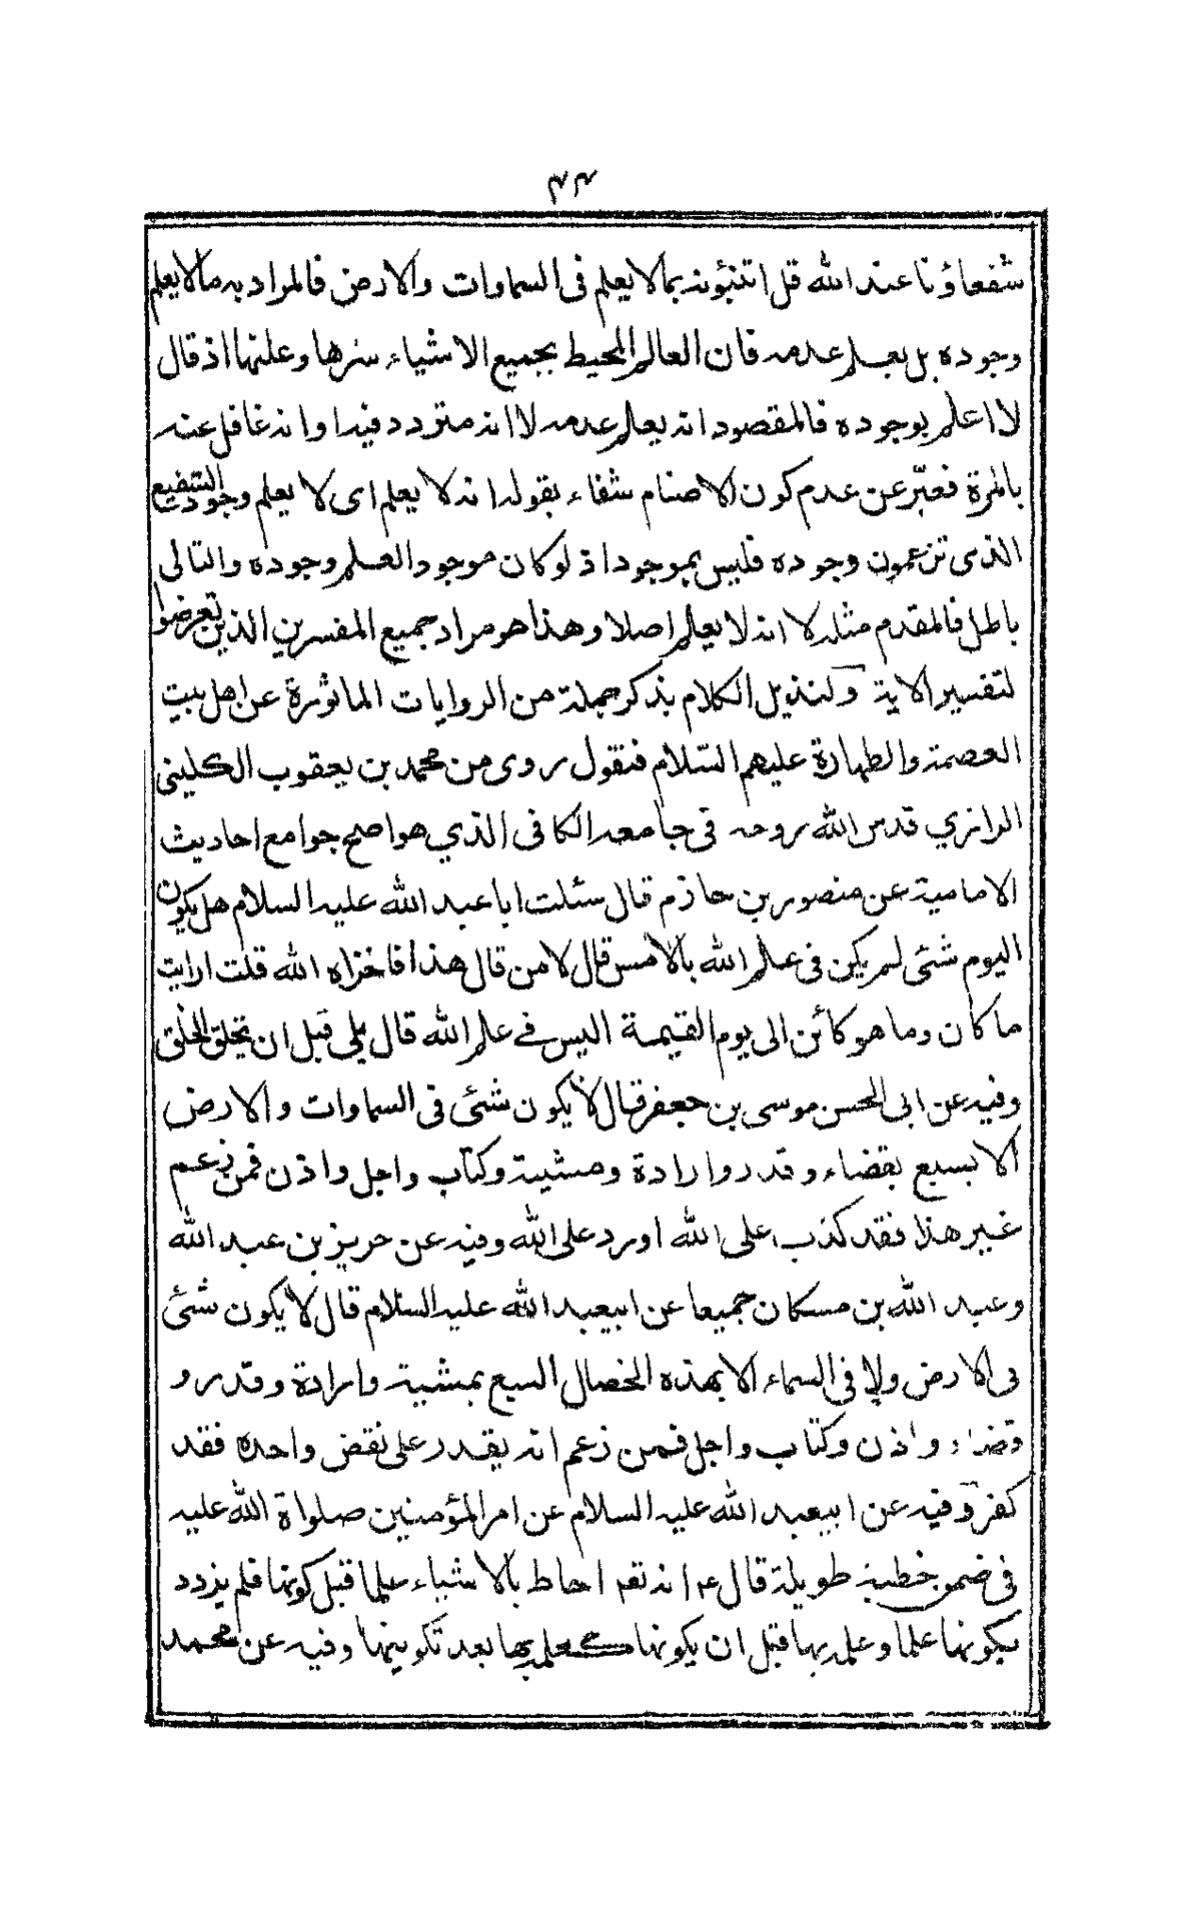 ٣٣
شفعاؤنا عند الله قل اتنبؤنه بما لا يعلم فى السماوات والارض فالمراد به ما لا يعلم
وجوده بل يعلم عدمه فان العالم المحيط بجميع الاشياء سرها وعلنها اذ قال
لا اعلم بوجوده فالمقصود انه يعلم عدمه لا انه متردد فيه او انه غافل عنه
بالمرة فعبّر عن عدم كون الاصنام شفاء بقوله انه لا يعلم اى لا يعلم وجود الشفيع
الذى تزعمون وجوده فليس بموجود اذ لو كان موجودا لعلم وجوده والتالى
باطل فالمقدم مثله لا انه لا يعلم اصلا وهذا هو مراد جميع المفسرين الذين تعرضوا
لتفسير الاية ولنذيل الكلام بذكر جملة من الروايات الماثورة عن اهل بيت
العصمة والطهارة عليهم السّلام فنقول روى من محمد بن يعقوب الكلينى
الرازي قدس الله روحه فى جامعه الكافى الذي هو اصح جوامع احاديث
الامامية عن منصور بن حازم قال سئلت ابا عبد الله عليه السلام هل يكون
اليوم شئى لم يكن فى علم الله بالامس قال لا من قال هذا فاخزاه الله قلت ارايت
ما كان وما هو كائن الى يوم القيمة اليس فے علم الله قال بلى قبل ان يخلق الخلق
وفيه عن ابى الحسن موسى بن جعفر قال لا يكون شئى فى السماوات والارض
الا بسبع بقضاء وقدر وارادة ومشية وكتاب واجل واذن فمن زعم
غير هذا فقد كذب على الله او رد على الله وفيه عن حريز بن عبد الله
وعبد الله بن مسكان جميعا عن ابيعبد الله عليه السلام قال لا يكون شئى
فى الارض ولا فى السماء الا بهذه الخصال السبع بمشية وارادة وقدر و
قضاء واذن وكتاب واجل فمن زعم انه يقدر على نقض واحده فقد
كفر وفيه عن ابيعبد الله عليه السلام عن امر المؤمنين صلواة الله عليه
فى ضمن خطبة طويلة قال ع انه تعم احاط بالاشياء علما قبل كونها فلم يزدد
بكونها علما وعلمه بها قبل ان يكونها كعلمه بها بعد تكوينها وفيه عن محمد